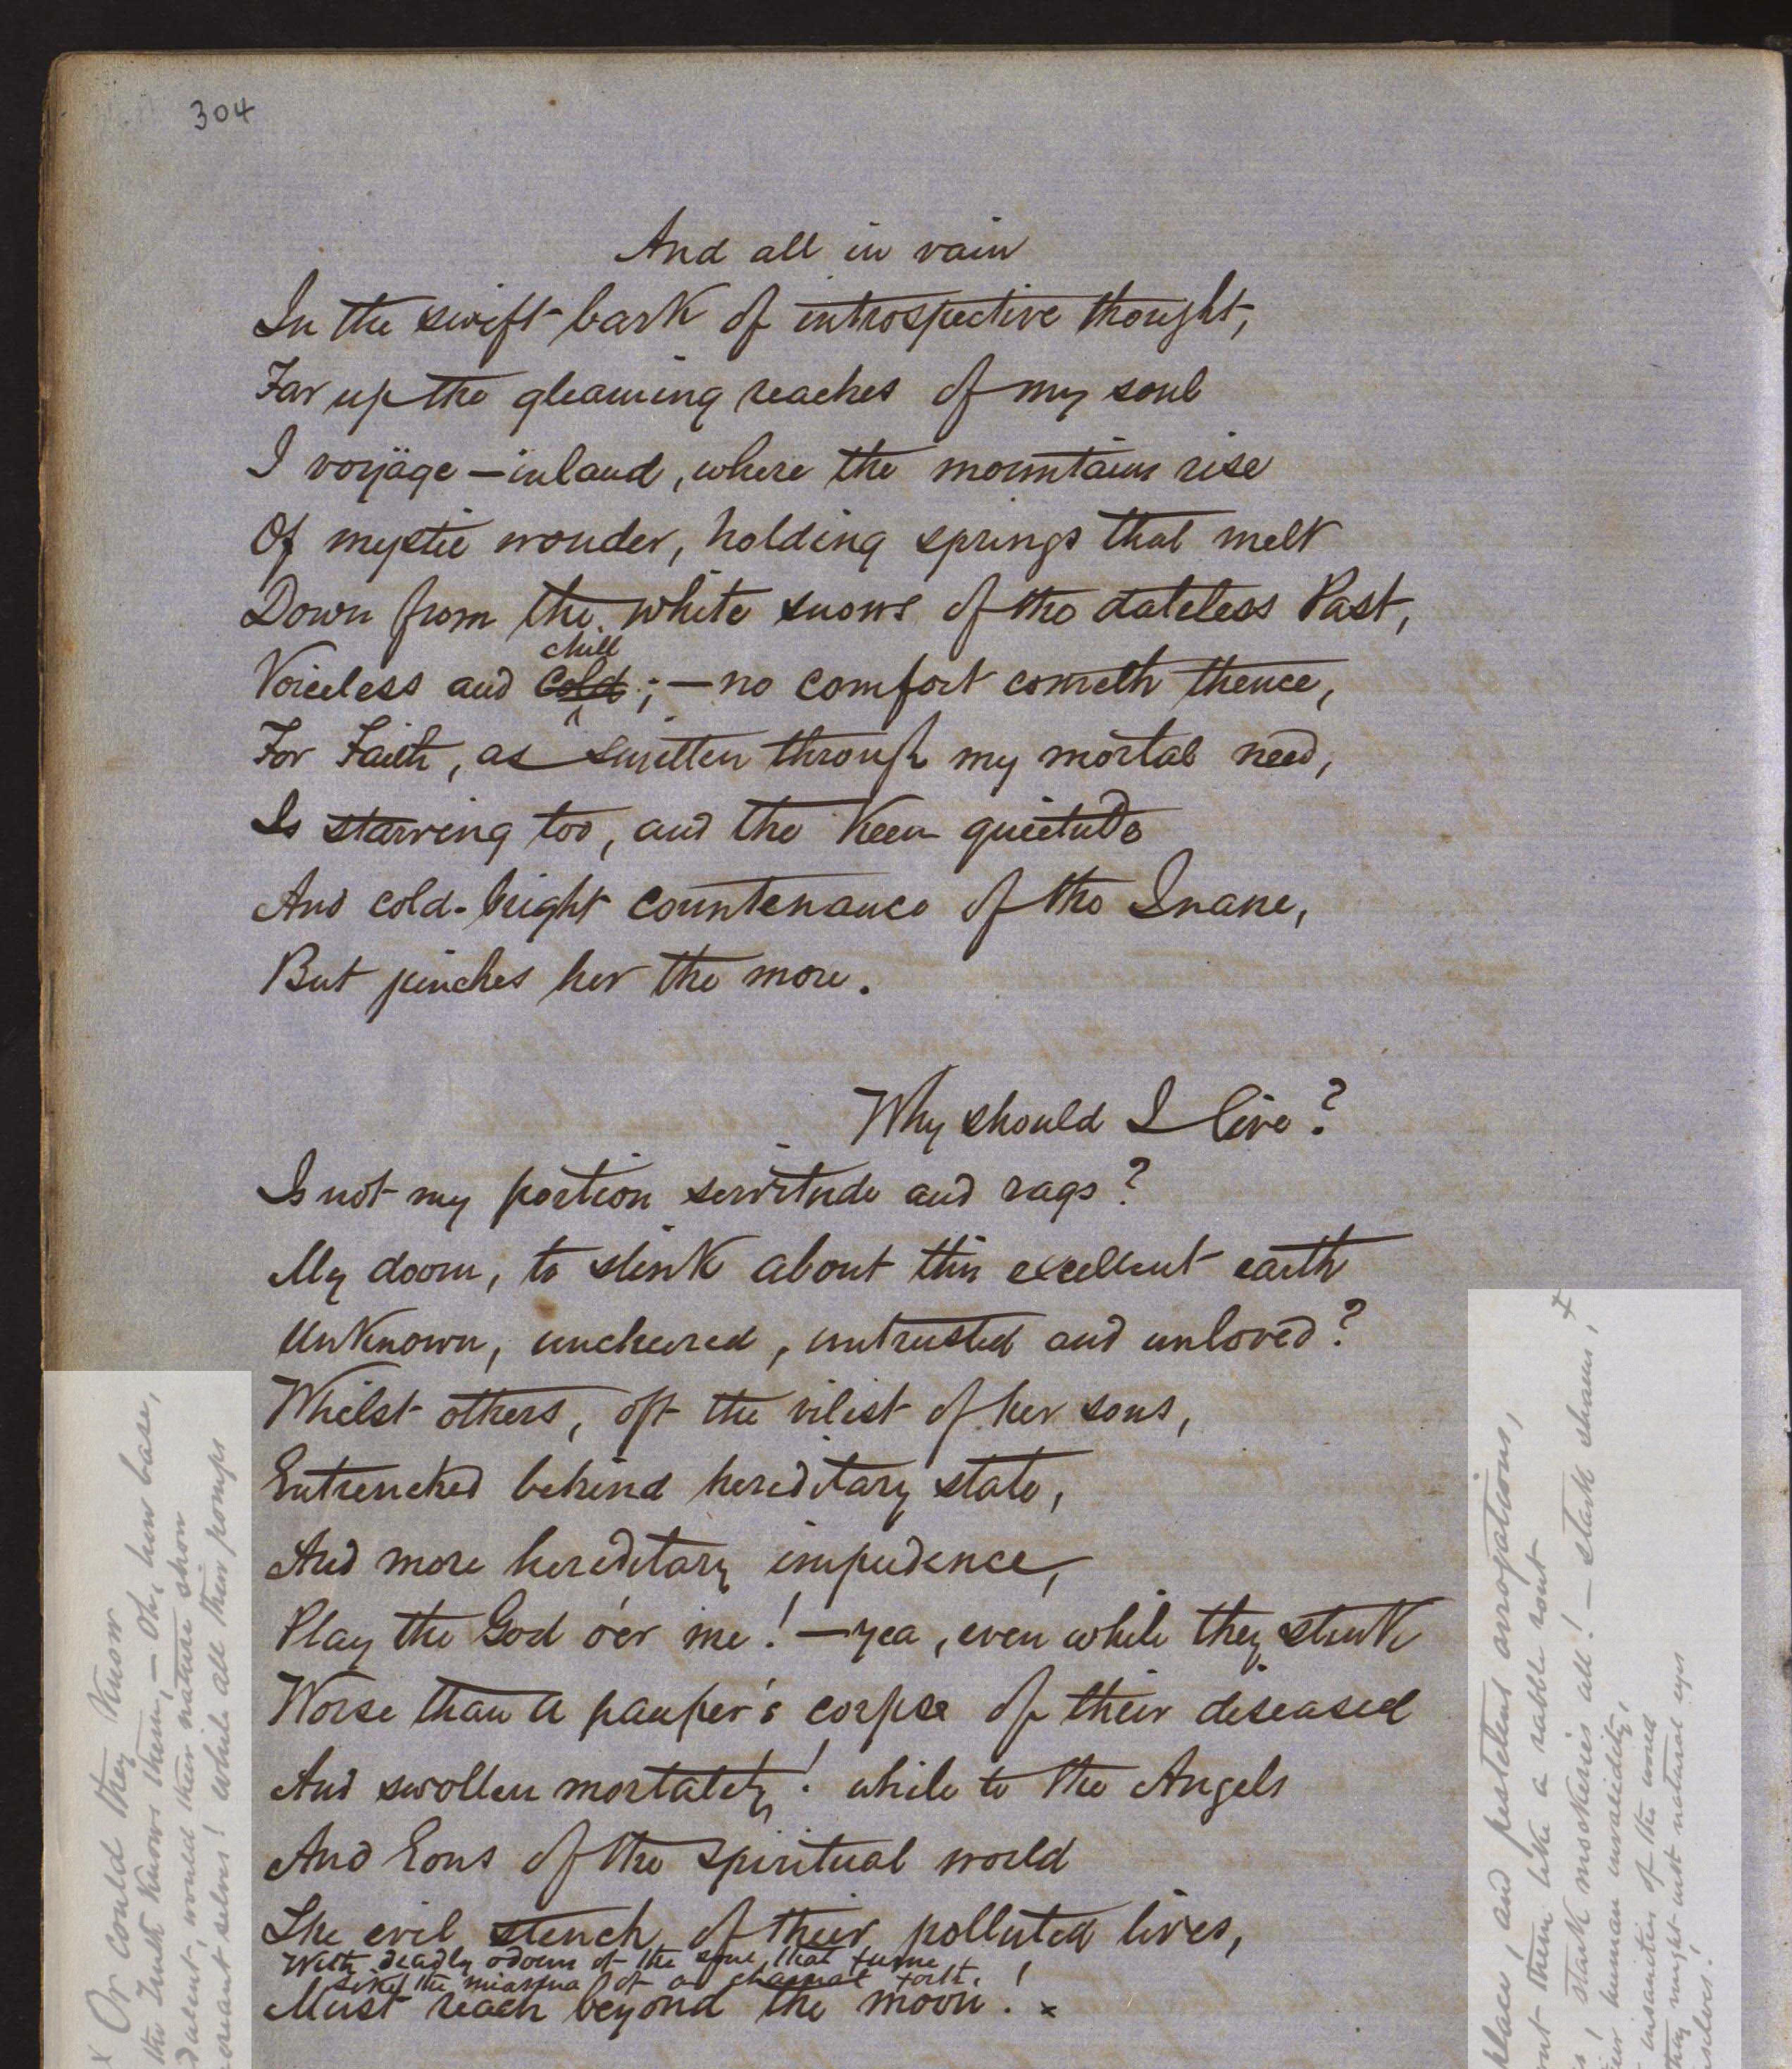 304
And all in vain
In the swift bark of introspective thought,
Far up the gleaming reaches of my soul
I voyäge — inland, where the mountains rise
Of mystic wonder, holding springs that melt
Down from the white snows of the dateless Past,
chill
Voiceless and cold; — no comfort cometh thence,
For Faith, as smitten through my mortal need,
Is starving too, and the keen quietude
And cold-bright countenance of the Inane,
But pinches her the more.
Why should I live?
Is not my portion servitude and rags?
My doom, to slink about this excellent earth
Unknown, uncheered, untrusted and unloved?
Whilst others, oft the vilest of her sons,
Entrenched behind hereditary state,
And more hereditary impudence,
Play the God o'er me! — yea, even while they stink
Worse than a pauper's corpse of their diseased
And swollen mortality! while to the Angels
And Eons of the spiritual world
The evil stench of their polluted lives,
With deadly odour of the that fume
Like the miasma of a charnal forth!
Must reach beyond the moon! x
x Or could they know
the Truth knows them, — Oh, how base,
would their nature show
selves! while all their pomps
place, and pestilent arrogations,
them like a rabble rout
! stark mockeries all! — stark shams, +
human invalidity,
insanities of the world
they might with natural eyes
selves!